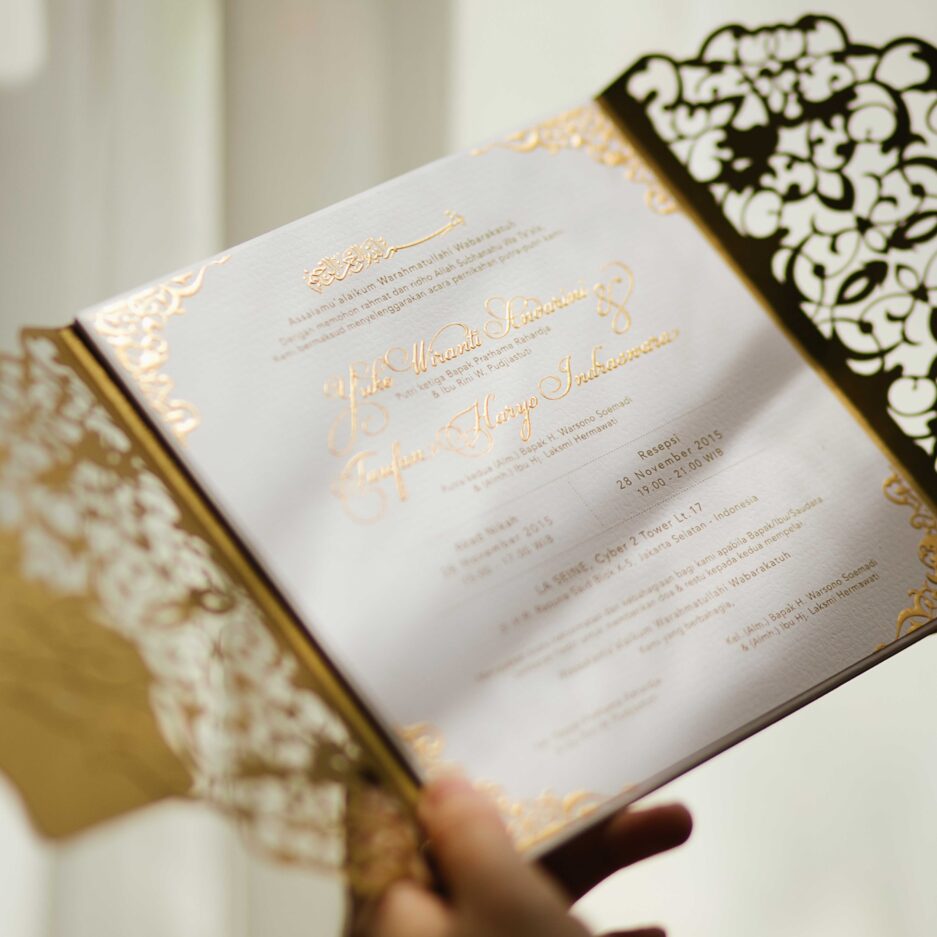 Assalamu'alaikum Warahmatullahi Wabarakatuh
Dengan memohon rahmat dan ridho Allah Subhanahu Wa Ta'ala,
kami bermaksud menyelenggarakan acara pernikahan putra-putri kami
Yuke Wiranti Andarini &
Putri ketiga Bapak Prathama Rahardja
& Ibu Rini W. Pudjiastuti
Taufan Haryo Indraswara
Putra kedua (Alm.) Bapak H. Warsono Soemadi
& (Almh.) Ibu Hj. Laksmi Hermawati
Akad Nikah
28 November 2015
WIB
Resepsi
28 November 2015
19.00 - 21.00 WIB
LA SEINE, Cyber 2 Tower Lt.17
Jl. H.R. Rasuna Said Blok X-5, Jakarta Selatan - Indonesia
kehormatan dan kebahagiaan bagi kami apabila Bapak/Ibu/Saudara
untuk memberikan doa & restu kepada kedua mempelai
Wassalamu'alaikum Warahmatullahi Wabarakatuh
Kami yang berbahagia,
Kel. (Alm.) Bapak H. Warsono Soemadi
& (Almh.) Ibu Hj. Laksmi Hermawati